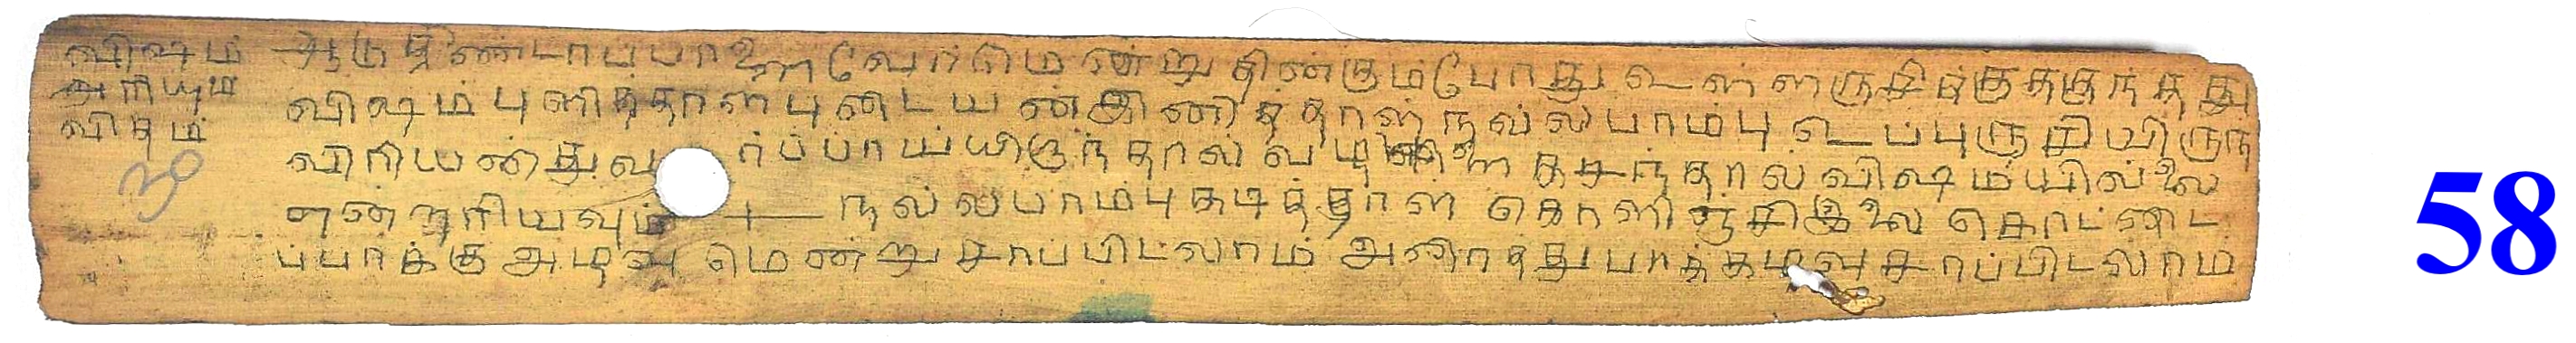 விஷம்
அறியும்
விதம்
ஆடுதிண்டாப்பாளை வேர் மென்று தின்கும்போது உள்ளருசிக்குத்தகுந்தது
விஷம் புளித்தால் புடையன் இனித்தால் நல்லபாம்பு உப்புருசியிருந்
விரியன் துவ ர்ப்பாய்யிருந்தால் வழலை கசந்தால் விஷம்யில்லை
என்றறியவும் நல்லபாம்பு கடித்தால் கொளிஞ்சிஇலை கொட்டை
ப்பாக்கு அழவு மென்று சாப்பிடலாம் அனைத்து பாக்கழவு சாப்பிடலாம்
58